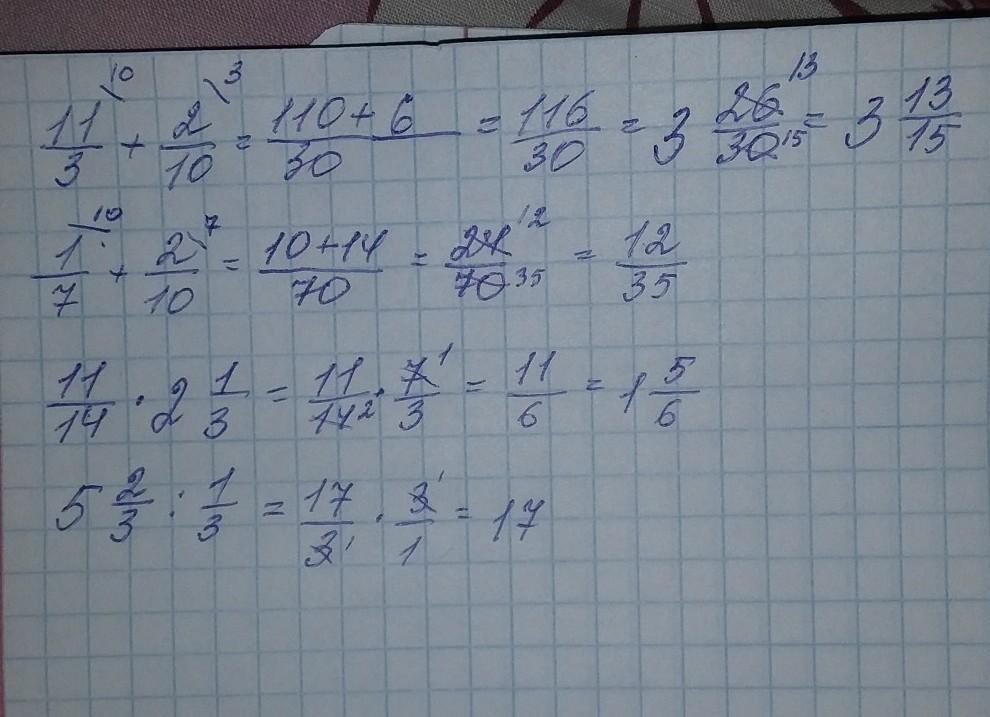 11/3\10 + 2/10\3 = (110+6)/30 = 116/30 = 3 26/30 13 15 = 3 13/15
1/7\10 + 2/10\7 = (10+14)/70 = 24/70 12 35 = 12/35
11/14 · 2 1/3 = 11/14 2 · 7/3 1 = 11/6 = 1 5/6
5 2/3 : 1/3 = 17/3 1 · 3/1 1 = 17